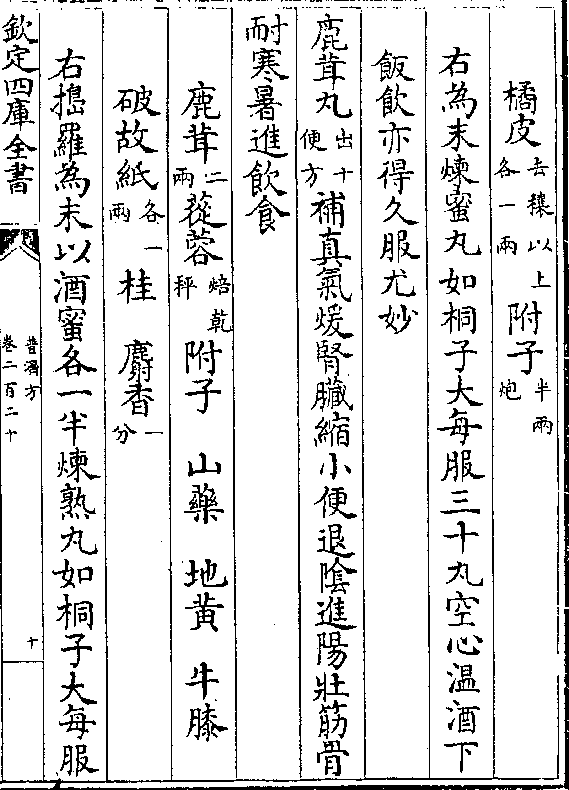 橘皮去穰以上各一兩附子半兩炮
右為末煉蜜丸如桐子大每服三十丸空心温酒下
飯飲亦得久服尤妙
鹿茸丸出十便方補真氣煖腎臟縮小便退陰進陽壯筋骨
耐寒暑進飲食
鹿茸二兩蓯蓉焙乾秤附子 山藥 地黃 牛膝
破故紙各一兩桂 麝香一分
右搗羅為末以酒蜜各一半煉熟丸如桐子大每服
欽定四庫全書
普濟方
卷二百二十
十